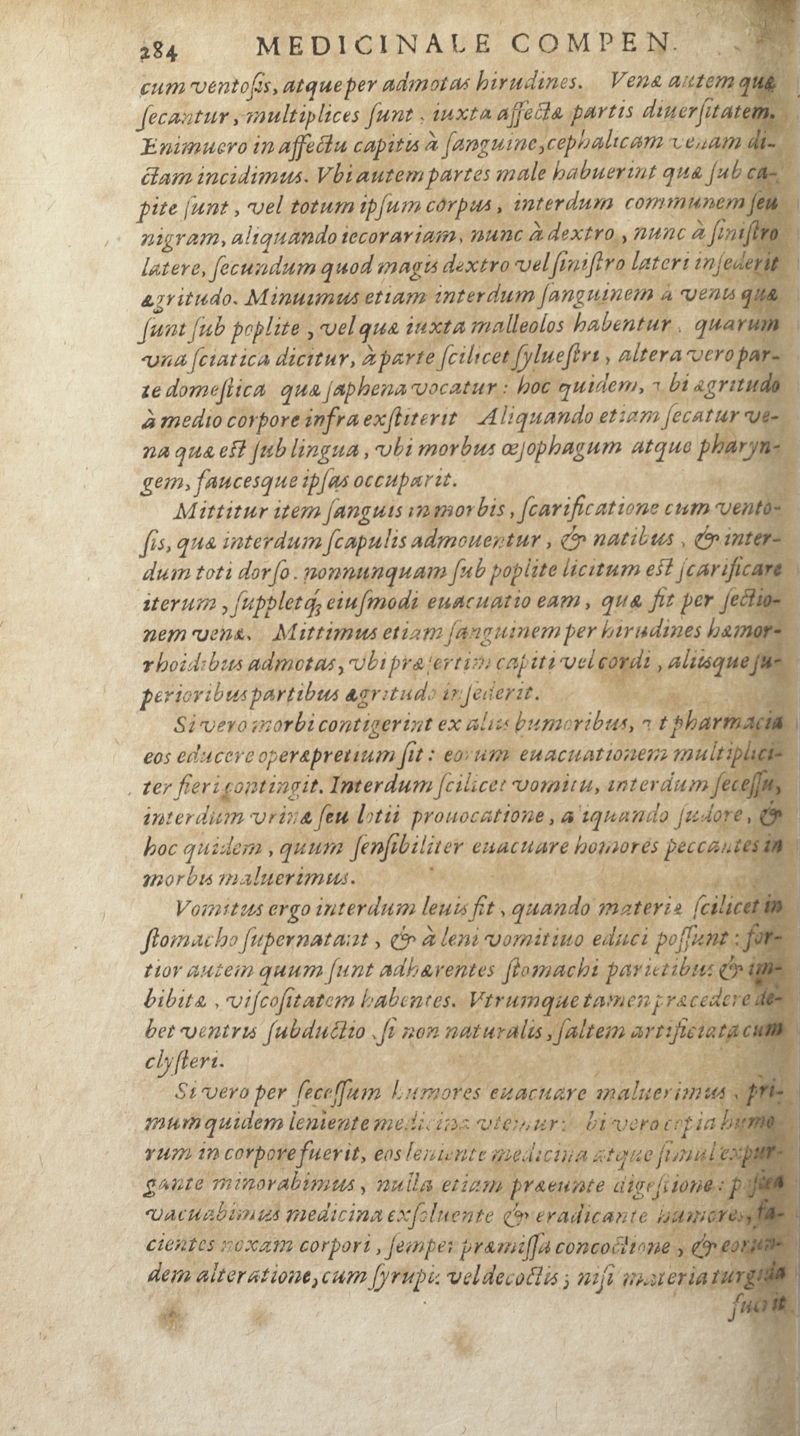 284 MEDICINALE COMPEN.
cum ventoſis, atque per admotas hirudines. Venæ autem quæ
ſecantur, multiplices ſunt, iuxta affectæ partis diuerſitatem.
Enimuero in affectu capitis à ſanguine, cephalicam venam di-
ctam incidimus. Vbi autem partes male habuerint quæ ſub ca-
pite ſunt, vel totum ipſum corpus, interdum communem ſeu
nigram, aliquando iecorariam, nunc à dextro, nunc à ſiniſtro
latere, ſecundum quod magis dextro vel ſiniſtro lateri inſederit
ægritudo. Minuimus etiam interdum ſanguinem à venis quæ
ſunt ſub poplite, vel quæ iuxta malleolos habentur, quarum
vna ſciatica dicitur, à parte ſcilicet ſylueſtri, altera vero par-
te domeſtica quæ ſaphena vocatur: hoc quidem, vbi ægritudo
à medio corpore infra exſtiterit Aliquando etiam ſecatur ve-
na quæ eſt ſub lingua, vbi morbus œſophagum atque pharyn-
gem, faucesque ipſas occuparit.
Mittitur item ſanguis in morbis, ſcarificatione cum vento-
ſis, quæ interdum ſcapulis admouentur, & natibus, & inter-
dum toti dorſo. nonnunquam ſub poplite licitum eſt ſcarificare
iterum, ſuppletq; eiuſmodi euacuatio eam, quæ fit per ſectio-
nem venæ. Mittimus etiam ſanguinem per hirudines hæmor-
rhoidibus admotas, vbi præſertim capiti vel cordi, aliisque ſu-
perioribus partibus ægritudo inſederit.
Si vero morbi contigerint ex aliis humoribus, vt pharmacia
eos educere operæpretium ſit: eorum euacuationem multiplici-
ter fieri contingit. Interdum ſcilicet vomitu, interdum ſeceſſu,
interdum vrinæ ſeu lotii prouocatione, aliquando ſudore, &
hoc quidem, quum ſenſibiliter euacuare homores peccantes in
morbis maluerimus.
Vomitus ergo interdum leuis fit, quando materiæ ſcilicet in
ſtomacho ſupernatant, & à leni vomitiuo educi poſſunt: for-
tior autem quum ſunt adhærentes ſtomachi parietibus & im-
bibitæ, viſcoſitatem habentes. Vtrumque tamen præcedere de-
bet ventris ſubductio, ſi non naturalis, ſaltem artificiata cum
clyſteri.
Si vero per ſeceſſum humores euacuare maluerimus, pri-
mum quidem leniente medicina vtemur: vbi vero copia humo
rum in corpore fuerit, eos leniente medicina atque ſimul expur-
gante minorabimus, nulla etiam præeunte digeſtione: poſtea
vacuabimus medicina exſoluente & eradicante humores, fa-
cientes noxam corpori, ſemper præmiſſa concoctione, & eorun-
dem alteratione, cum ſyrupis vel decoctis; niſi materia turgida
fuerit